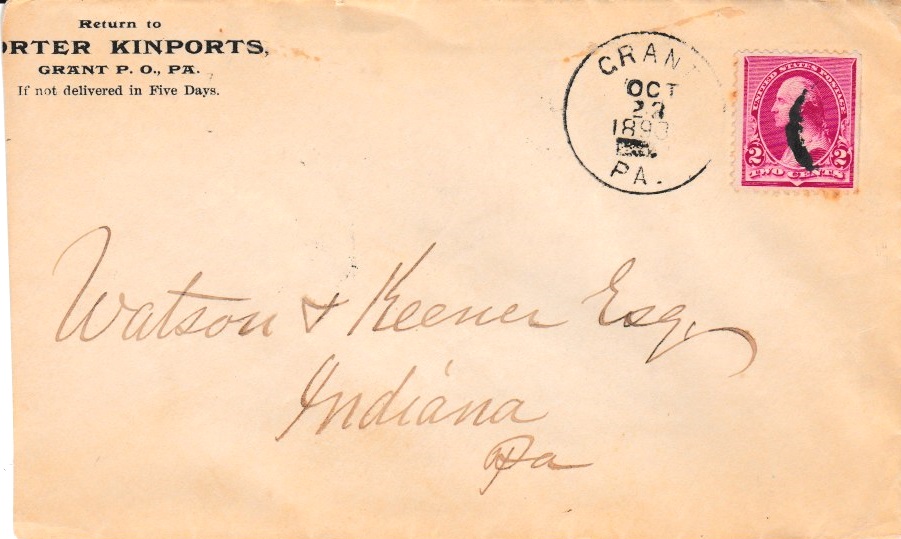 Return to
ORTER KINPORTS,
GRANT P. O., PA.
If not delivered in Five Days.
GRANT
OCT
23
1893
PA.
UNITED STATES POSTAGE
2 2
TWO CENTS
Watson & Keener Esq.
Indiana
Pa